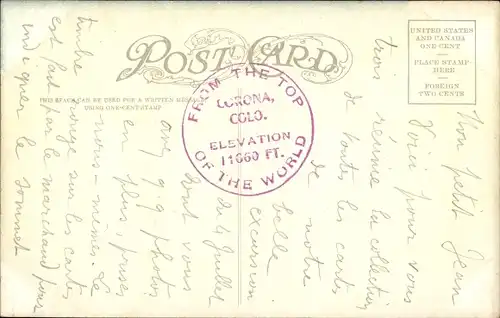 POST CARD
THIS SPACE CAN BE USED FOR A WRITTEN MESSAGE
USING ONE-CENT STAMP
UNITED STATES
AND CANADA
ONE CENT
PLACE STAMP
HERE
FOREIGN
TWO CENTS
FROM THE TOP
OF THE WORLD
CORONA,
COLO.
ELEVATION
11660 FT.
Mon petit Jean
Voici pour vous
trois réunie la collection
de toutes les cartes
de notre
belle
excursion
du 4 Juillet
dont vous
avez q.q. photos
en plus, prises
par nous-mêmes. Le
timbre rouge sur les cartes
est fait par le marchand pour
indiquer le sommet